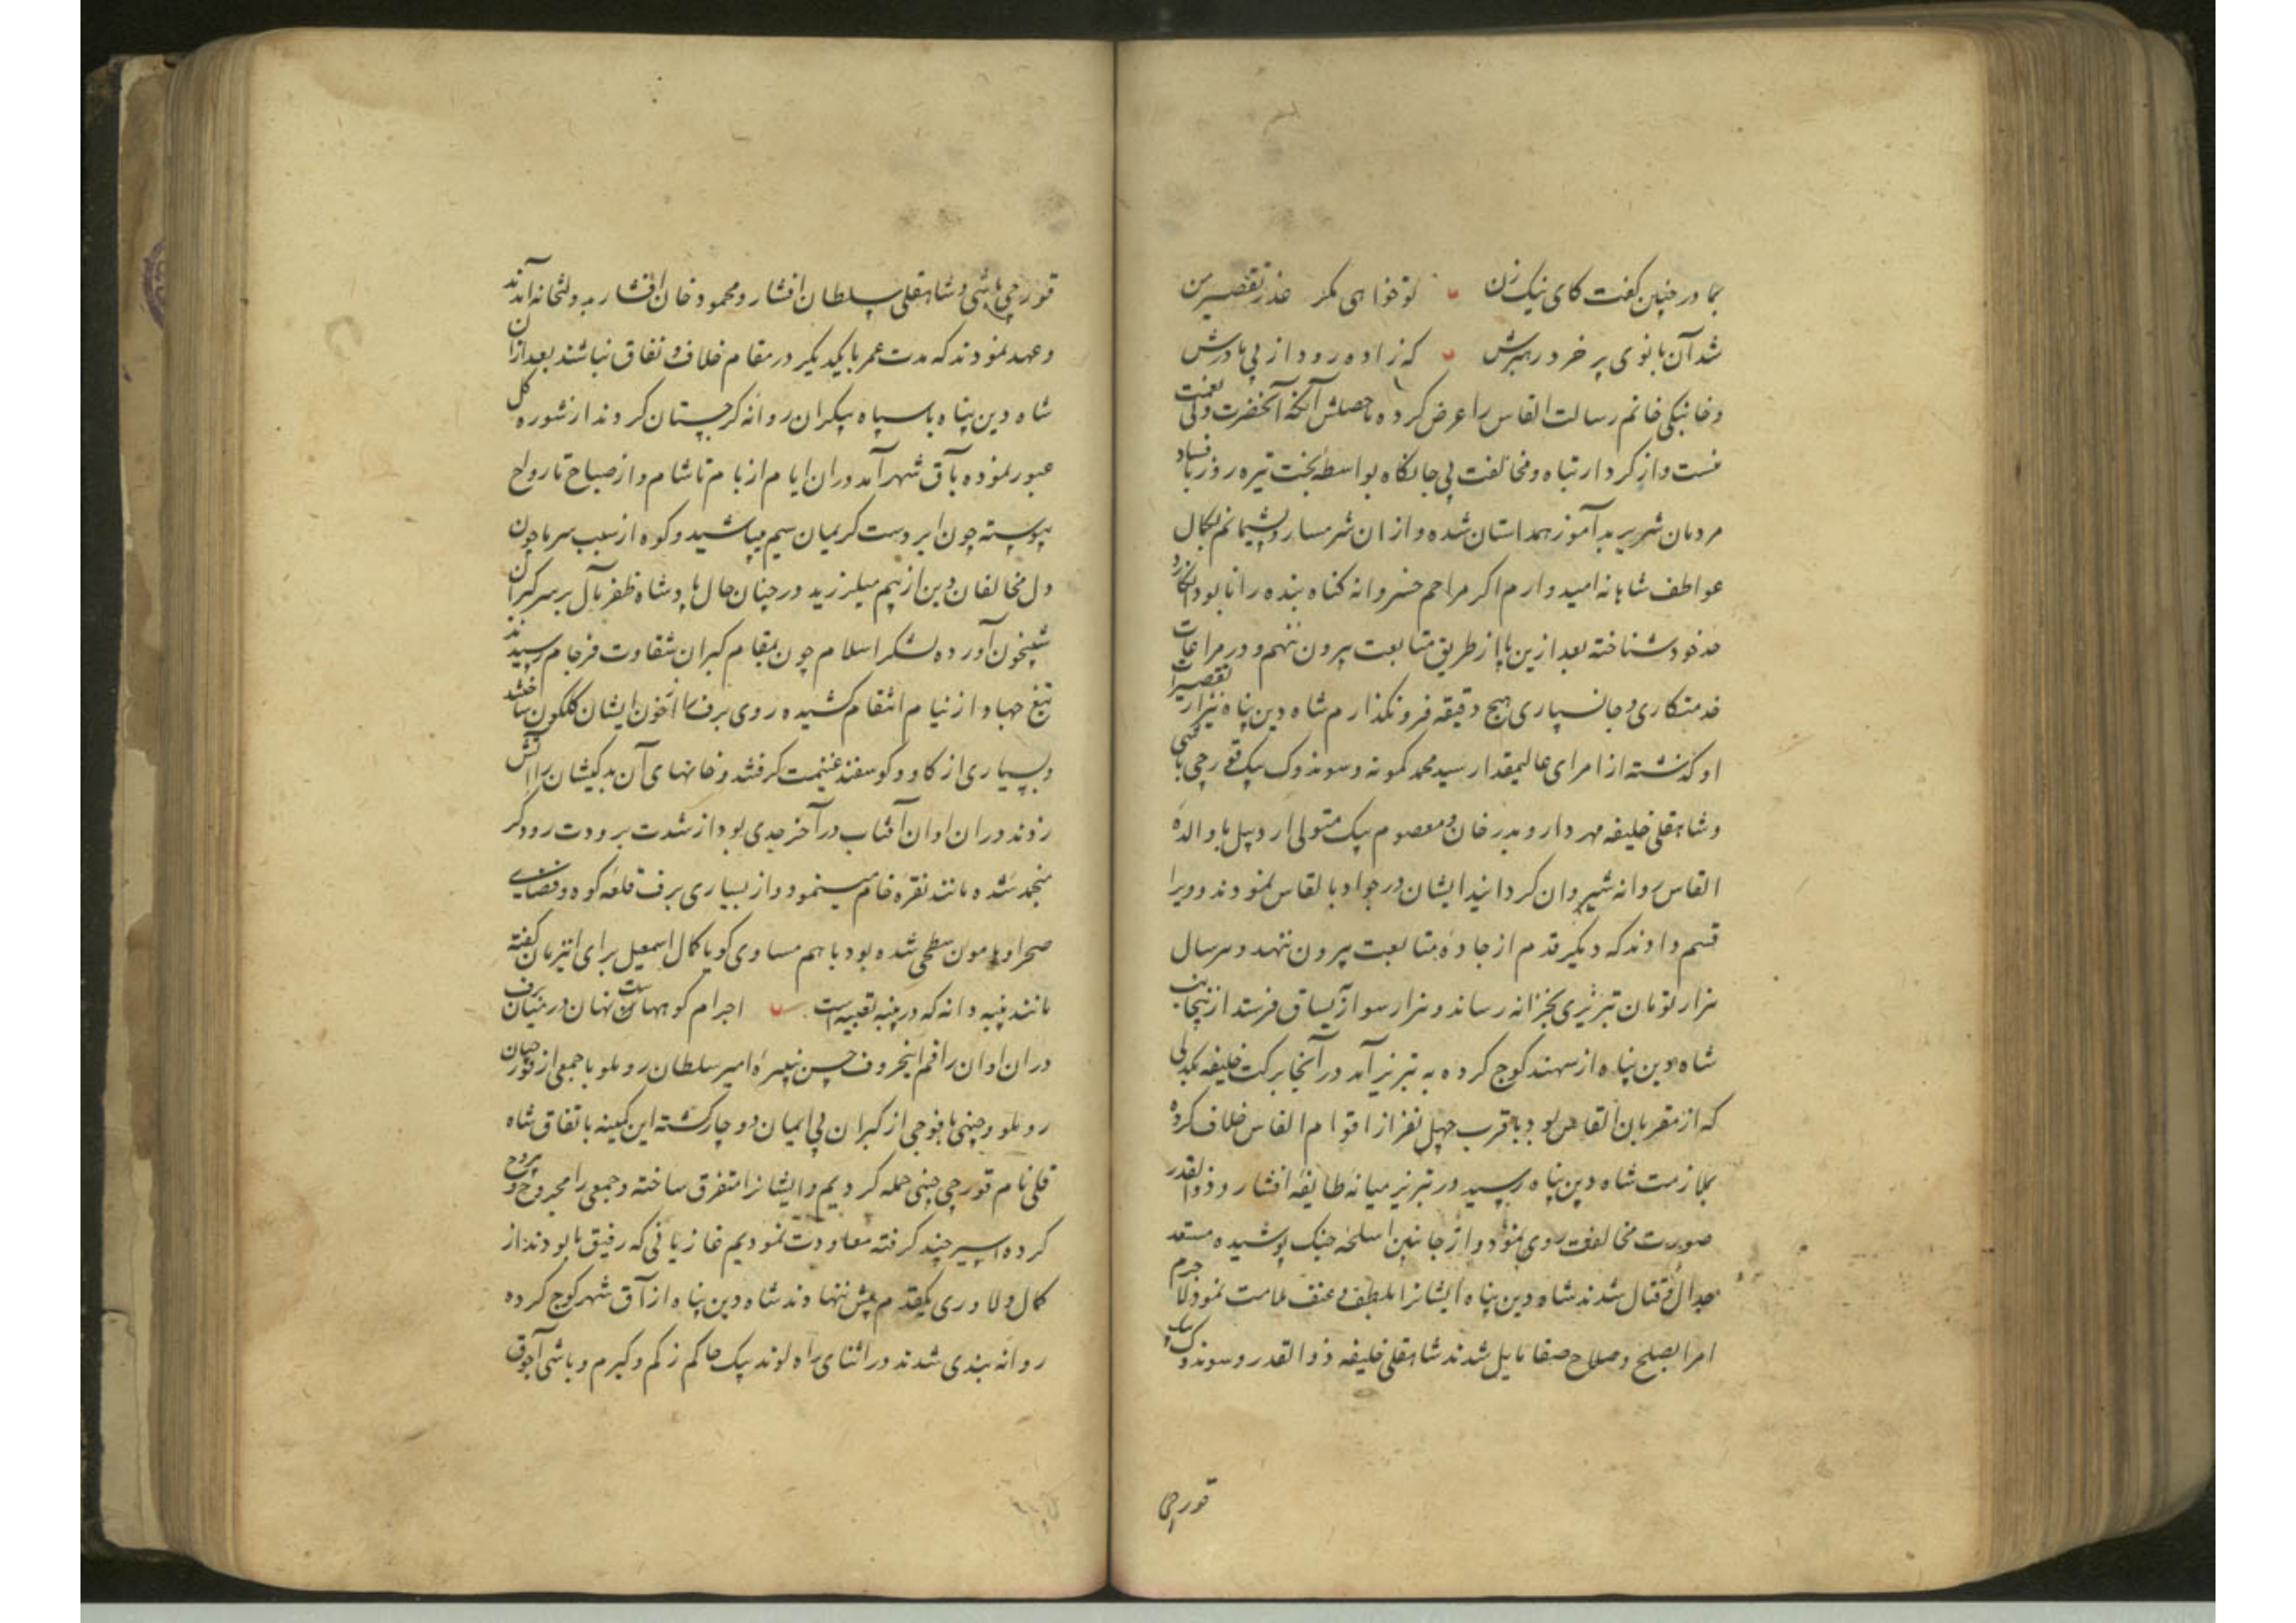 بمادر چنین گفت کای نیک زن تو خواهی مگر عذر تقصیر من
شد آن بانوی پر خرد رهبرش که زاده رود از پی مادرش
و خانبکی خانم رسالت القاس را عرض کرده ماحصلش آنکه آنحضرت ولی نعمت
منست و از کردار تباه و مخالفت بی جایگاه بواسطه بخت تیره روز با فساد
مردمان شریر بدآموز همداستان شده و از ان شرمسار و پشیمانم بکمال
عواطف شاهانه امیدوارم اگر مراحم خسروانه کناه بنده را نابود انکارد
حد خود شناخته بعد ازین پا از طریق متابعت بیرون ننهم و در مراعات
خدمتکاری و جانسپاری هیچ دقیقه فرو نکذارم شاه دین پناه نیز از تقصیرات
او کذشته از امرای عالیمقدار سید محمد کمونه و سوندوک بیک قورچی باشی
و شاهقلی خلیفه مهردار و بدر خان و معصوم بیک متولی اردبیل با والده
القاس روانه شیروان کردانید ایشان در جواد با لقاس نمودند و ویرا
قسم دادند که دیگر قدم از جاده متابعت بیرون ننهد و هر سال
هزار تومان تبریزی بخزانه رساند و هزار سوار بیساق فرستد از نیجانب
شاه دین پناه از سهند کوج کرده به تبریز آمد در آنجا برکت خلیفه
که از مقربان القاس بود با قرب چهل نفر از اقوام القاس خلاف کرده
بملازمت شاه دین پناه رسید در تبریز میانه طایفه افشار و ذوالقدر
صورت مخالفت روی نمود و از جانبین اسلحه جنک پوشیده مستعد
جدال و قتال شدند شاه دین پناه ایشانرا بلطف و عنف ملامت نمود لاجرم
امرا بصلح و صلاح صفا مایل شدند شاهقلی خلیفه ذوالقدر و سوندوک بیک
قورچی
قورچی باشی و شاهقلی سلطان افشار و محمود خان افشار بدولتخانه آمدند
و عهد نمودند که مدت عمر با یکدیکر در مقام خلاف و نفاق نباشند بعد از ان
شاه دین پناه با سپاه بیکران روانه کرجستان کردند از شوره کل
عبور نموده بآق شهر آمد در ان ایام از بام تا شام و از صباح تا رواح
پیوسته چون ابر دست کریمان سیم میپاشید و کوه از سبب سرما چون
دل مخالفان دین از بیم میلرزید در چنان حال پادشاه ظفر مآل بر سر کبران
شبیخون آورده لشکر اسلام چون بمقام کبران شقاوت فرجام رسیدند
تیغ جهاد از نیام انتقام کشیده روی برف را از خون ایشان کلکون ساختند
و بسیاری از کاو و کوسفند غنیمت کرفتند و خانهای آن بدکیشان را آتش
زدند در ان اوان آفتاب در آخر جدی بود از شدت برودت رود کر
منجمد شده مانند نقره خام مینمود و از بسیاری برف قلعه کوه و فضای
صحرا و هامون سطحی شده بود با هم مساوی کویا کمال اسمعیل برای این زمان کفته
مانند پنبه دانه که در پنبه تعبیه است اجرام کوههاست نهان در میان برف
در ان اوان راقم اینحروف حسن نبیره امیر سلطان روملو با جمعی از قورچیان
روملو و چپنی با فوجی از کبران بی ایمان دوچار کشته این کمینه باتفاق شاه
قلی نام قورچی چپنی حمله کردیم و ایشانرا متفرق ساخته و جمعی را مجروح و
کرده اسیر چند کرفته معاودت نمودیم غازیانی که رفیق ما بودند از
کمال دلاوری یکقدم پیش ننهادند شاه دین پناه از آق شهر کوج کرده
روانه بندی شدند در اثنای راه لوند بیک حاکم زکم و کیرم و باشی آجوق